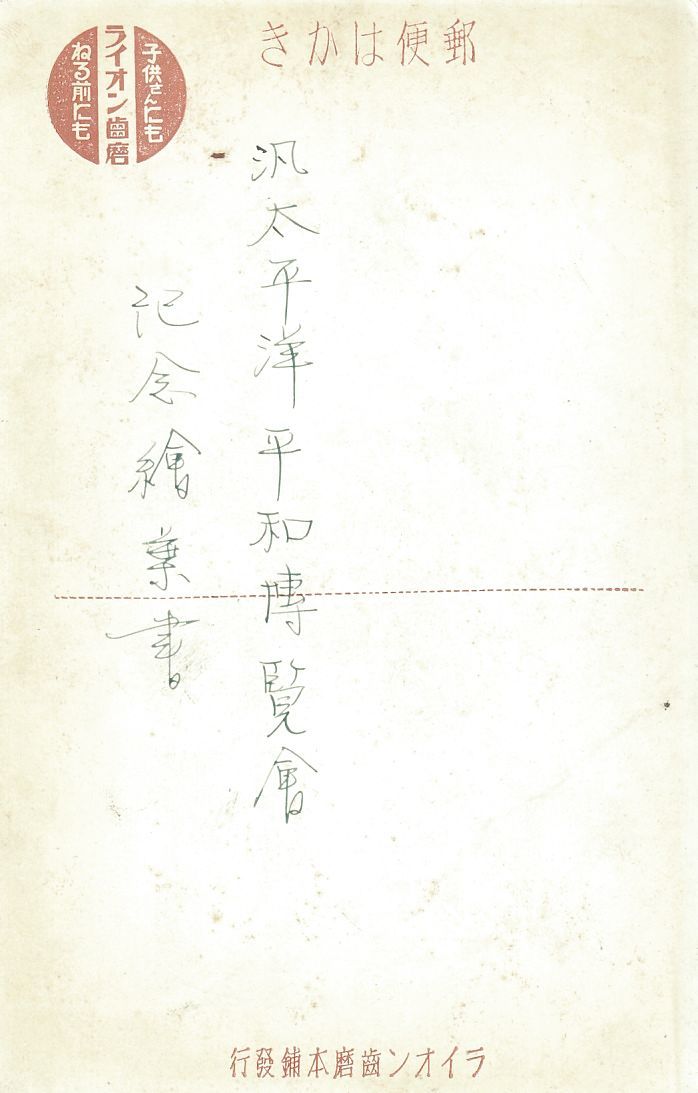 郵便はかき
子供さんにも
ライオン歯磨
ねる前にも
汎太平洋平和博覧會
記念繪葉書
ライオン歯磨本舗發行